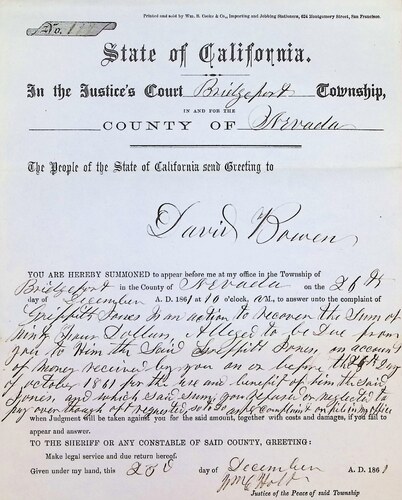 Printed and sold by Wm. B. Cooke & Co., Importing and Jobbing Stationers, 624 Montgomery Street, San Francisco.
No.
State of California.
In the Justice's Court Bridgeport Township,
IN AND FOR THE
COUNTY OF Nevada
The People of the State of California send Greeting to
David Bowen
YOU ARE HEREBY SUMMONED to appear before me at my office in the Township of
Bridgeport in the County of Nevada on the 26th
day of December A. D. 1861 at 10 o'clock, A.M., to answer unto the complaint of
Griffith Jones in an action to recover the Sum of
Ninty Four Dollars, Alleged to be Due from
you to Him the Said Griffith Jones on account
of money received by you on or before the 28th Day
of october 1861 for the use and benefit of him the said
Jones, and which said sum you refuse or neglect to
pay over though oft requested so to do as pr complaint on file in my office
when Judgment will be taken against you for the said amount, together with costs and damages, if you fail to
appear and answer.
TO THE SHERIFF OR ANY CONSTABLE OF SAID COUNTY, GREETING:
Make legal service and due return hereof.
Given under my hand, this 23d day of December A. D. 1861
Wm C Holt
Justice of the Peace of said Township